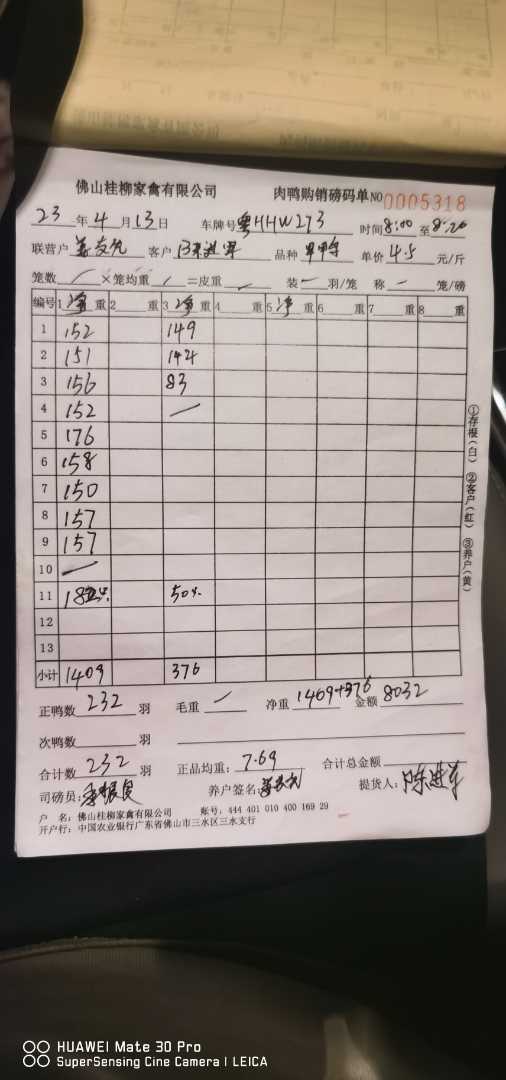 佛山桂柳家禽有限公司 肉鸭购销磅码单 NO 0005318
23 年 4 月 13 日 车牌号 粤HHW273 时间 8:00 至 8:20
联营户 客户 品种 单价 4.5 元/斤
笼数 / ×笼均重 / =皮重 / 装 一 羽/笼 称 一 笼/磅
编号 1 净 重 2 重 3 净 重 4 重 5 净 重 6 重 7 重 8 重
1 152 149
2 151 144
3 156 83
4 152 /
5 176
6 158
7 150
8 157
9 157
10 /
11 50只
12
13
小计 1409 376
正鸭数 232 羽 毛重 / 净重 1409+376 金额 8032
次鸭数 羽
合计数 232 羽 正品均重: 7.69 合计总金额
司磅员: 养户签名: 提货人: 陈进军
户 名: 佛山桂柳家禽有限公司 账号: 444 401 010 400 169 29
开户行: 中国农业银行广东省佛山市三水区三水支行
①存根(白) ②客户(红) ③养户(黄)
HUAWEI Mate 30 Pro
SuperSensing Cine Camera | LEICA